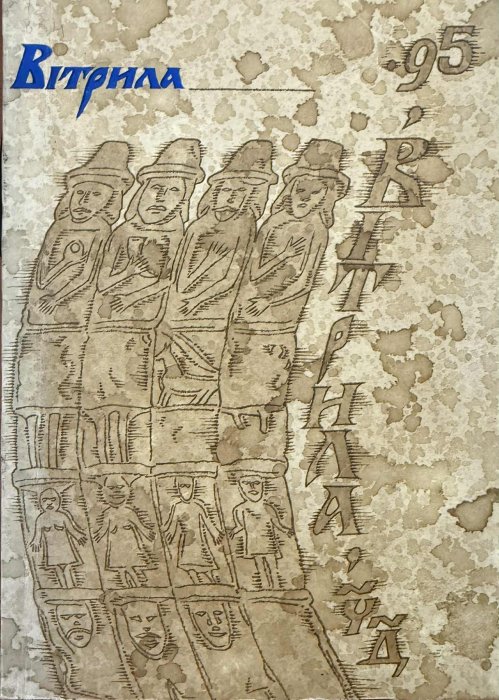 Вітрила
'95
Вітрила,
ч҃д